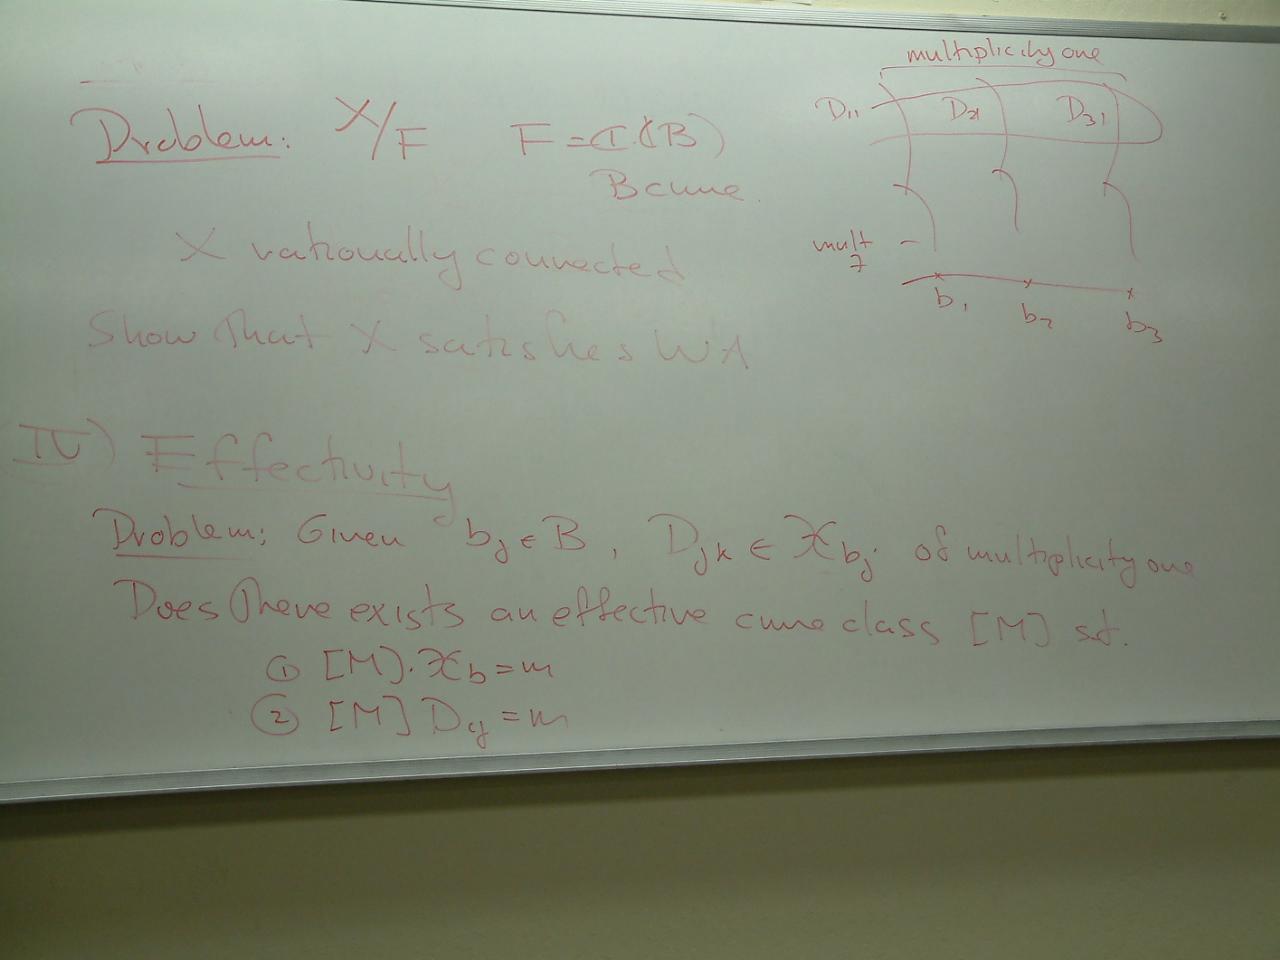 Problem: X/F F = ℂ(B)
B curve.
X rationally connected
Show that X satisfies WA
multiplicity one
D₁₁ D₂₁ D₃₁
mult
7
b₁ b₂ b₃
IV) Effectivity
Problem: Given bⱼ ∈ B, Dⱼₖ ∈ 𝒳_bⱼ of multiplicity one
Does there exists an effective curve class [M] s.t.
① [M]·𝒳_b = m
② [M] D_ij = m